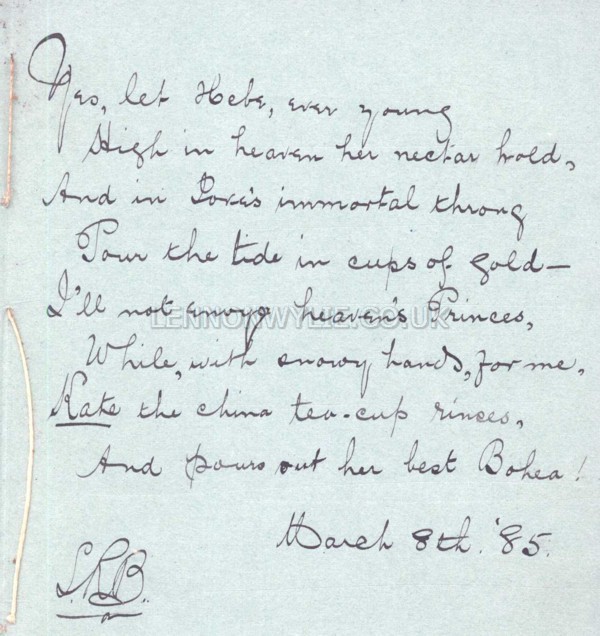 Yes, let Hebe, ever young
High in heaven her nectar hold,
And in Jove's immortal throng
Pour the tide in cups of gold—
I'll not envy heaven's Princes,
LENNONWYLIE.CO.UK
While, with snowy hands, for me,
Kate the china tea-cup rinces,
And pours out her best Bohea!
March 8th. '85.
S.R.B.